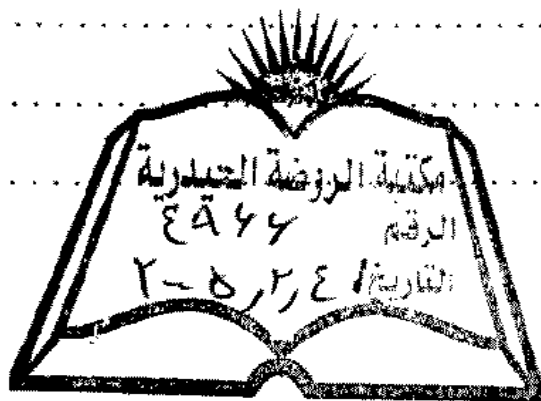 مكتبة الروضة الحيدرية
الرقم ٤٩٢٢
التاريخ